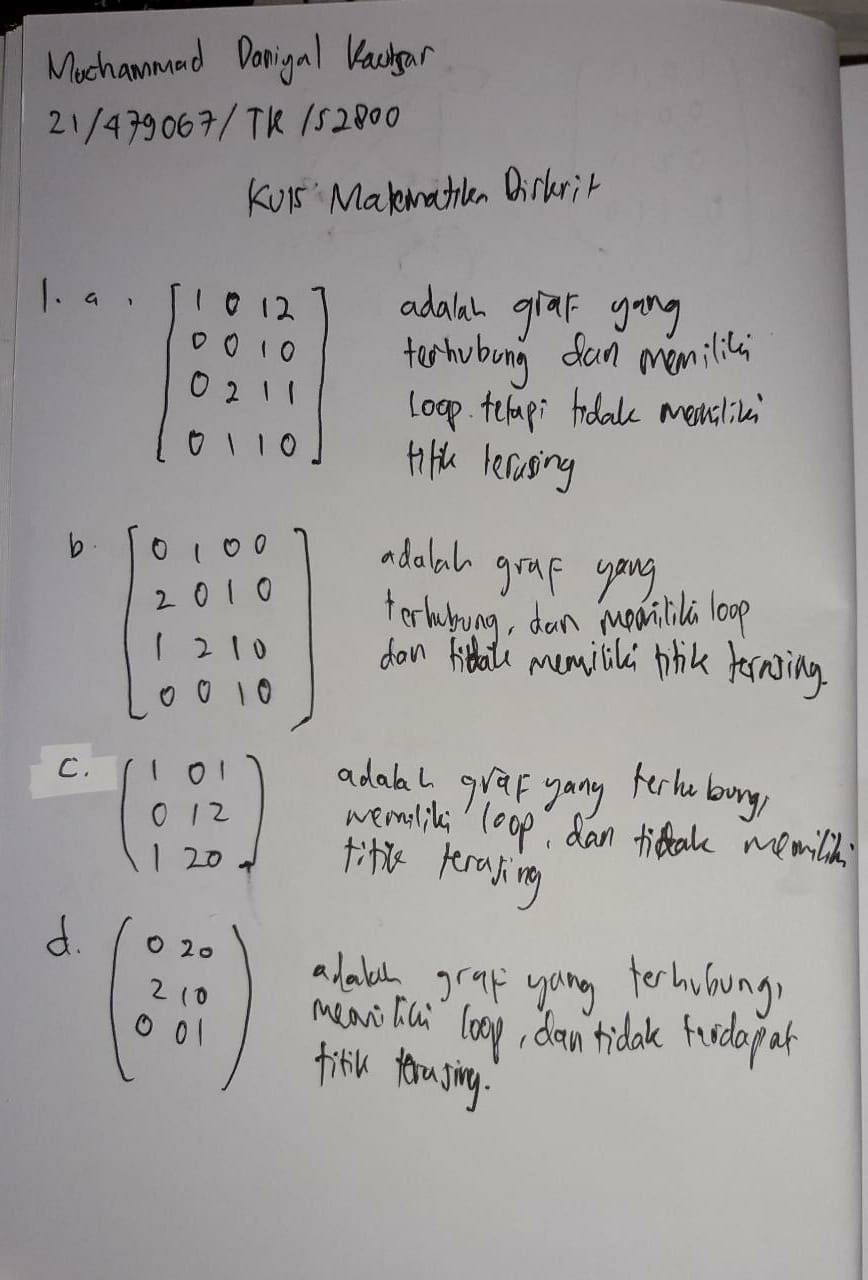 Muchammad Daniyal Kautsar
21/479067/TK/52800
Kuis Matematika Diskrit
1. a. [1 0 1 2] adalah graf yang
[0 0 1 0] terhubung dan memiliki
[0 2 1 1] loop. tetapi tidak memiliki
[0 1 1 0] titik terasing
b. [0 1 0 0] adalah graf yang
[2 0 1 0] terhubung, dan memiliki loop
[1 2 1 0] dan tidak memiliki titik terasing.
[0 0 1 0]
c. (1 0 1) adalah graf yang terhubung,
(0 1 2) memiliki loop, dan tidak memiliki
(1 2 0) titik terasing
d. (0 2 0) adalah graf yang terhubung,
(2 1 0) memiliki loop, dan tidak terdapat
(0 0 1) titik terasing.